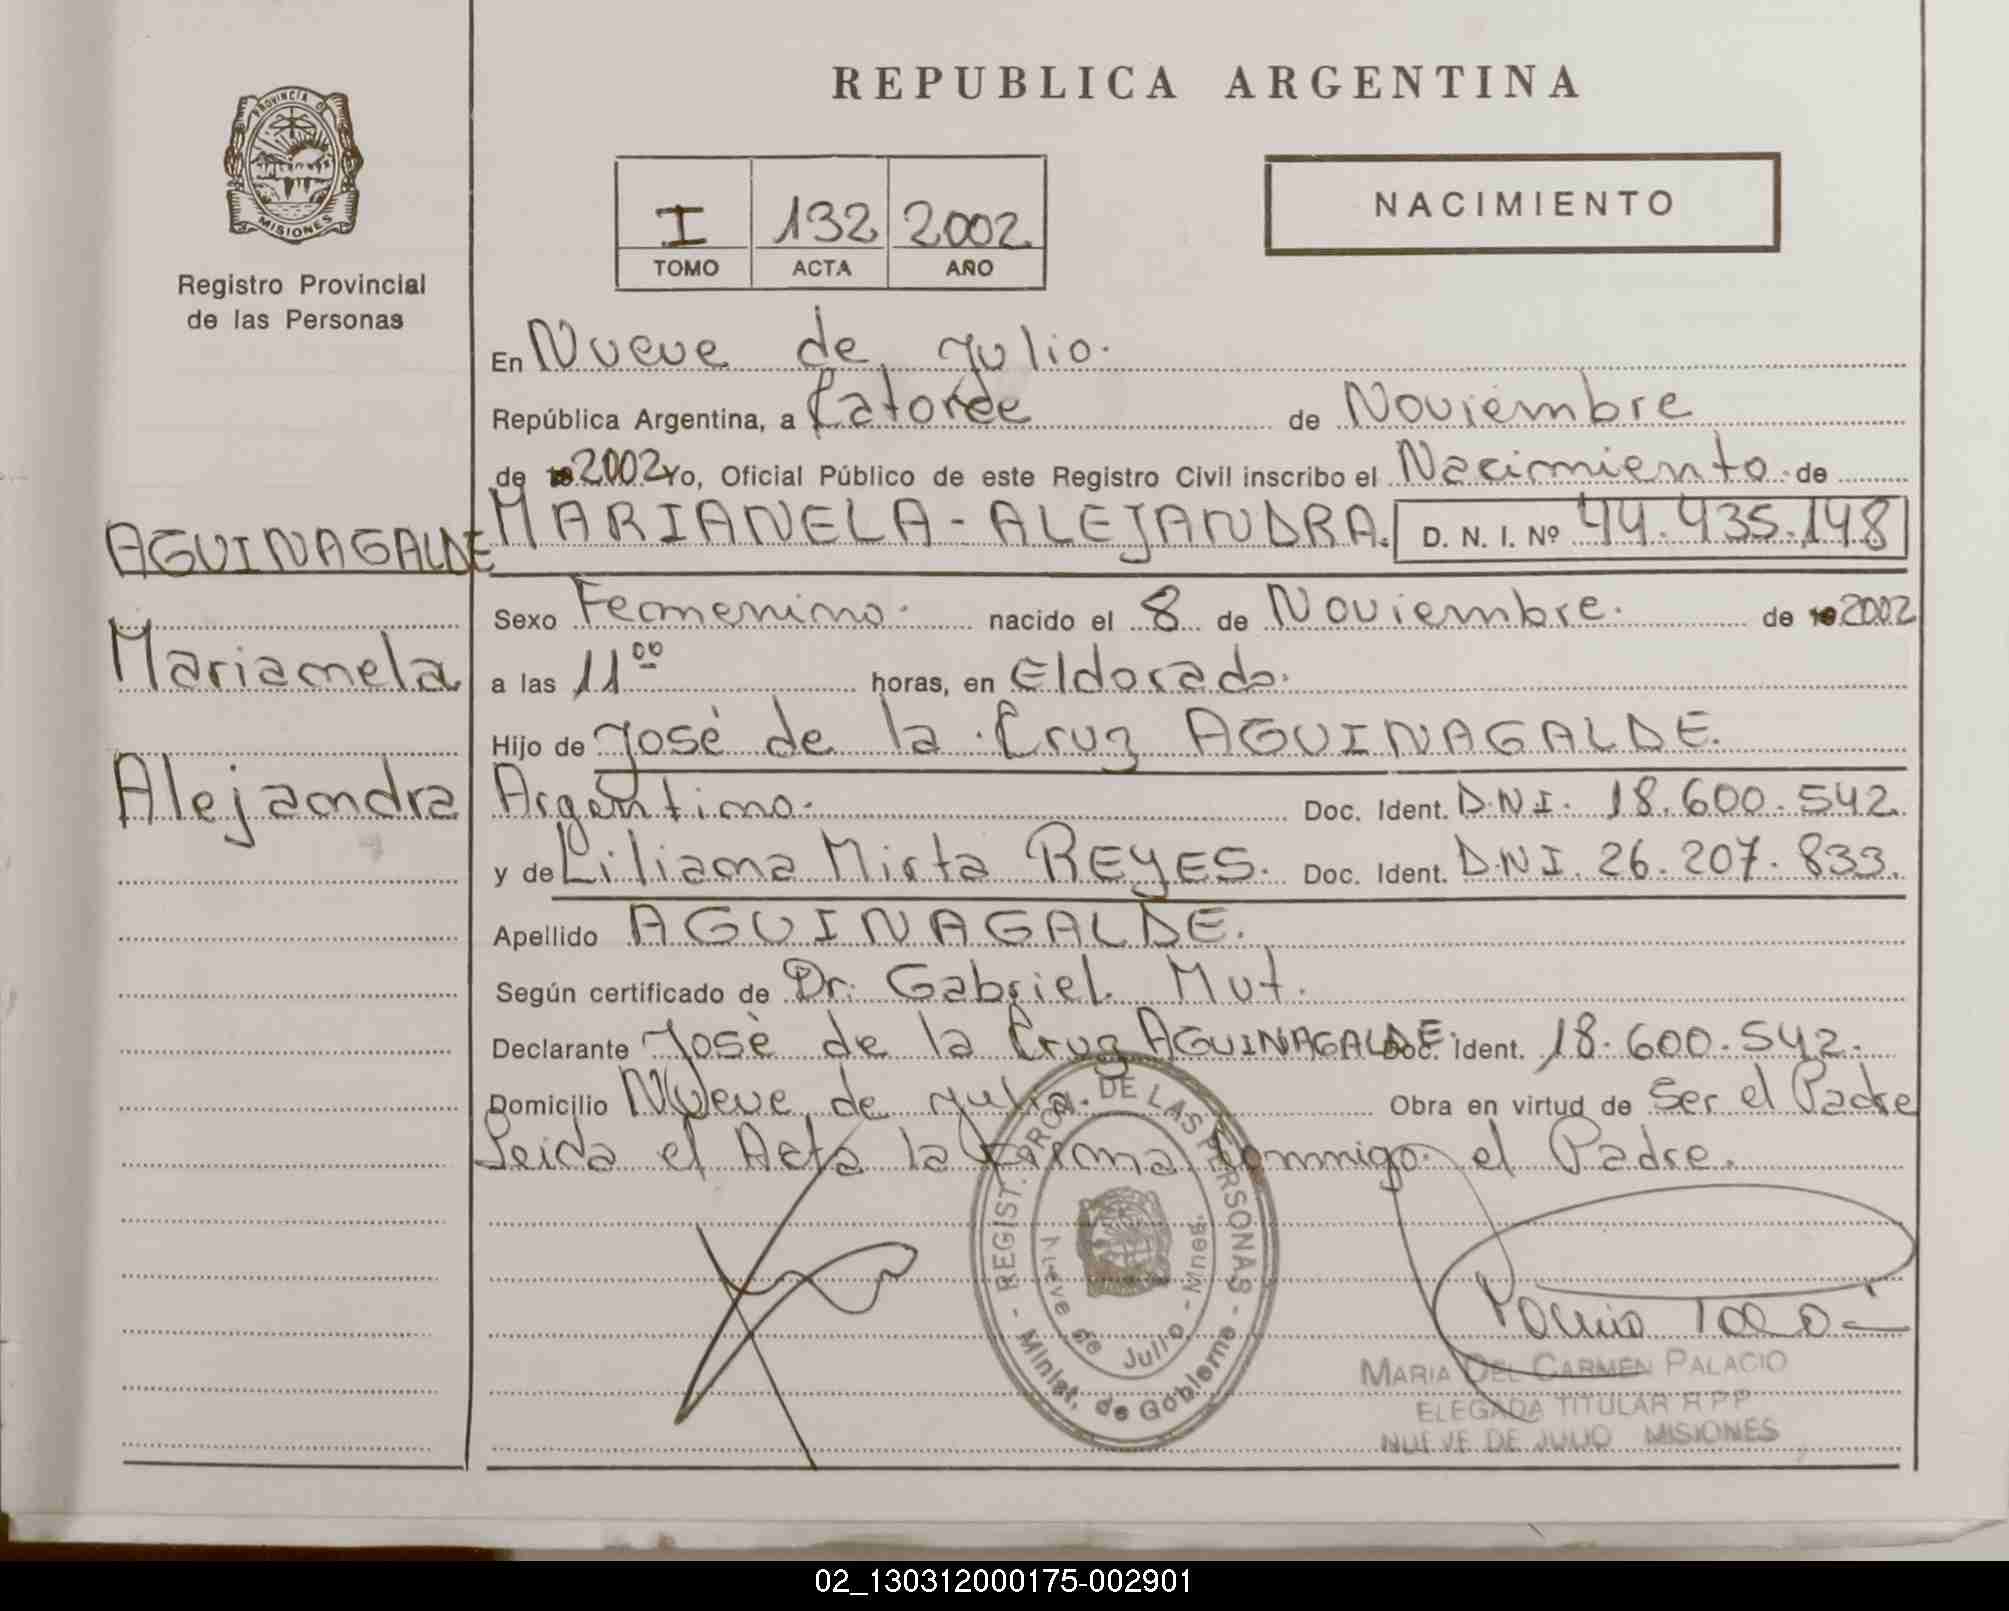 REPUBLICA ARGENTINA
PROVINCIA DE
MISIONES
Registro Provincial
de las Personas
I 132 2002
TOMO ACTA AÑO
NACIMIENTO
En Nueve de Julio.
República Argentina, a Catorce de Noviembre
de 2002 Yo, Oficial Público de este Registro Civil inscribo el Nacimiento de
AGUINAGALDE
Marianela
Alejandra
MARIANELA - ALEJANDRA. D. N. I. Nº 44.435.148
Sexo Femenino. nacido el 8 de Noviembre. de 2002
a las 11 00 horas, en Eldorado.
Hijo de José de la Cruz AGUINAGALDE.
Argentino. Doc. Ident. D.N.I. 18.600.542.
y de Liliana Mirta REYES. Doc. Ident. D.N.I. 26.207.833.
Apellido AGUINAGALDE.
Según certificado de Dr. Gabriel Mut.
Declarante José de la Cruz AGUINAGALDE Doc. Ident. 18.600.542.
Domicilio Nueve de Julio. Obra en virtud de Ser el Padre
Leida el Acta la Firma Conmigo el Padre.
- REGIST. PROV. DE LAS PERSONAS -
Minist. de Gobierno
Nueve de Julio - Mnes.
MARIA DEL CARMEN PALACIO
ELEGADA TITULAR R P P
NUEVE DE JULIO MISIONES
02_130312000175-002901